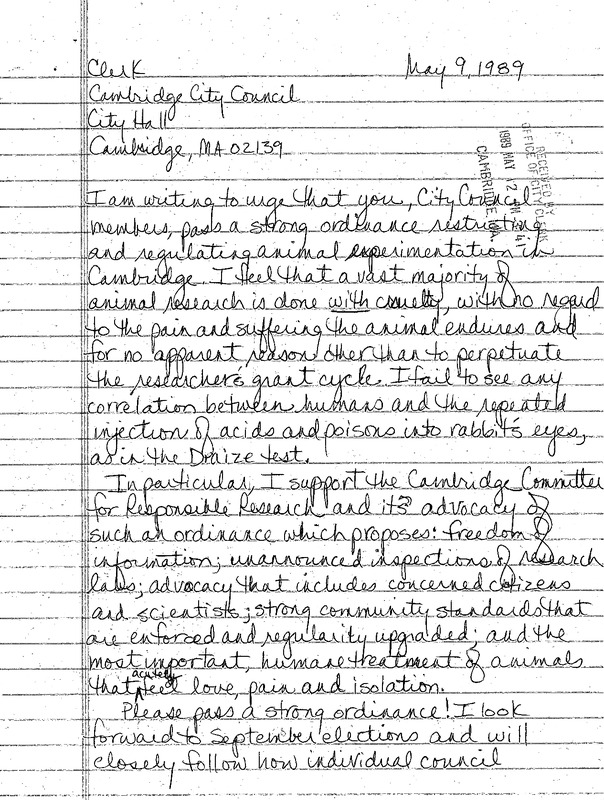 Clerk May 9, 1989
Cambridge City Council
City Hall
Cambridge, MA 02139
RECEIVED BY
OFFICE OF CITY CLERK
1989 MAY 12 PM 41
CAMBRIDGE, MA.
I am writing to urge that you, City Council
members, pass a strong ordinance restricting
and regulating animal experimentation in
Cambridge. I feel that a vast majority of
animal research is done with cruelty, with no regard
to the pain and suffering the animal endures and
for no apparent reason other than to perpetuate
the researcher's grant cycle. I fail to see any
correlation between humans and the repeated
injection of acids and poisons into rabbit's eyes,
as in the Draize test.
In particular, I support the Cambridge Committee
for Responsible Research and its advocacy of
such an ordinance which proposes: freedom of
information; unannounced inspections of research
labs; advocacy that includes concerned citizens
and scientists; strong community standards that
are enforced and regularity upgraded; and the
most important, humane treatment of animals
that acutely feel love, pain and isolation.
Please pass a strong ordinance! I look
forward to September elections and will
closely follow how individual council